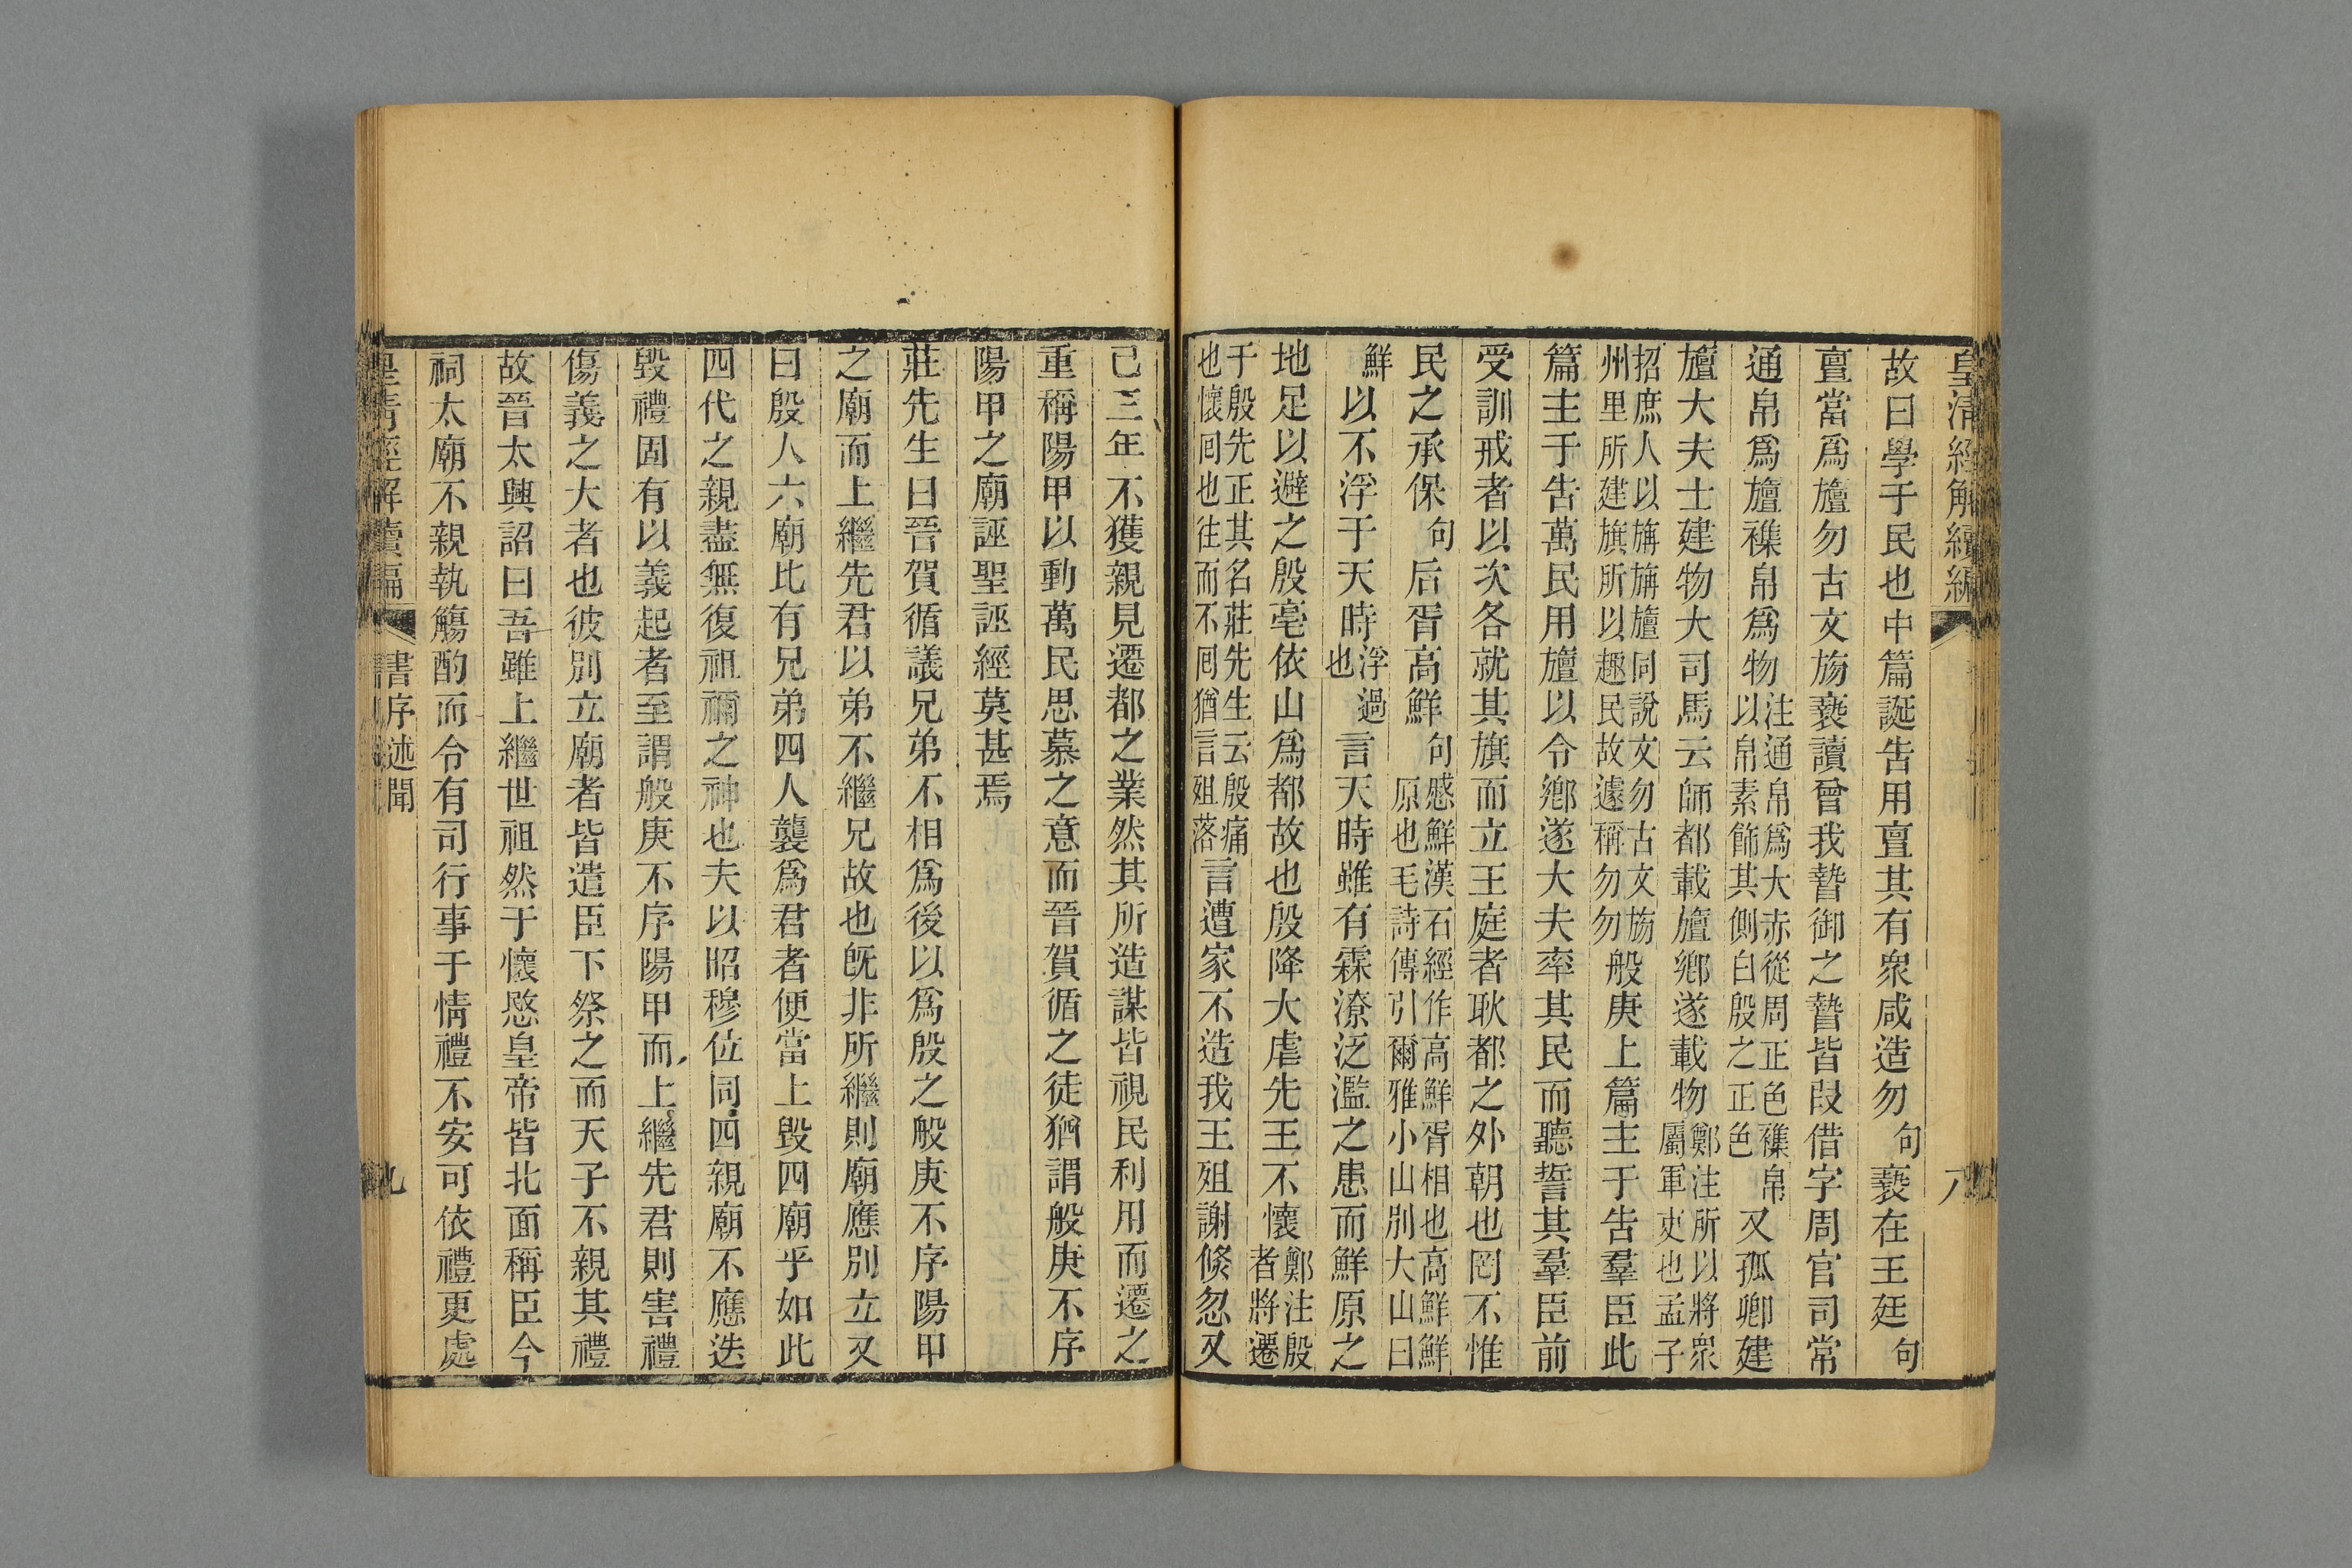 皇清經解續編
八
故曰學于民也中篇誕告用亶其有衆咸造勿句褻在王廷句
亶當爲旜勿古文㫃褻讀曾我暬御之暬皆叚借字周官司常
通帛爲旜襍帛爲物注通帛爲大赤從周正色襍帛以帛素飾其側白殷之正色又孤卿建
旜大夫士建物大司馬云師都載旜鄉遂載物鄭注所以將衆屬軍吏也孟子
招庶人以旃旃旜同說文勿古文㫃州里所建旗所以趣民故遽稱勿勿般庚上篇主于告羣臣此
篇主于告萬民用旜以令鄉遂大夫率其民而聽誓其羣臣前
受訓戒者以次各就其旗而立王庭者耿都之外朝也罔不惟
民之承保句后胥高鮮句慼鮮漢石經作高鮮胥相也高鮮鮮原也毛詩傳引爾雅小山別大山曰
鮮以不浮于天時浮過也言天時雖有霖潦泛濫之患而鮮原之
地足以避之殷亳依山爲都故也殷降大虐先王不懷鄭注殷者將遷
于殷先正其名莊先生云殷痛也懷回也往而不回猶言殂落言遭家不造我王殂謝倏忽又
已三年不獲親見遷都之業然其所造謀皆視民利用而遷之
重稱陽甲以動萬民思慕之意而晉賀循之徒猶謂般庚不序
陽甲之廟誣聖誣經莫甚焉
莊先生曰晉賀循議兄弟不相爲後以爲殷之般庚不序陽甲
之廟而上繼先君以弟不繼兄故也旣非所繼則廟應別立又
曰殷人六廟比有兄弟四人襲爲君者便當上毀四廟乎如此
四代之親盡無復祖禰之神也夫以昭穆位同四親廟不應迭
毀禮固有以義起者至謂般庚不序陽甲而上繼先君則害禮
傷義之大者也彼別立廟者皆遣臣下祭之而天子不親其禮
故晉太興詔曰吾雖上繼世祖然于懷愍皇帝皆北面稱臣今
祠太廟不親執觴酌而令有司行事于情禮不安可依禮更處
皇清經解續編
書序述聞
九